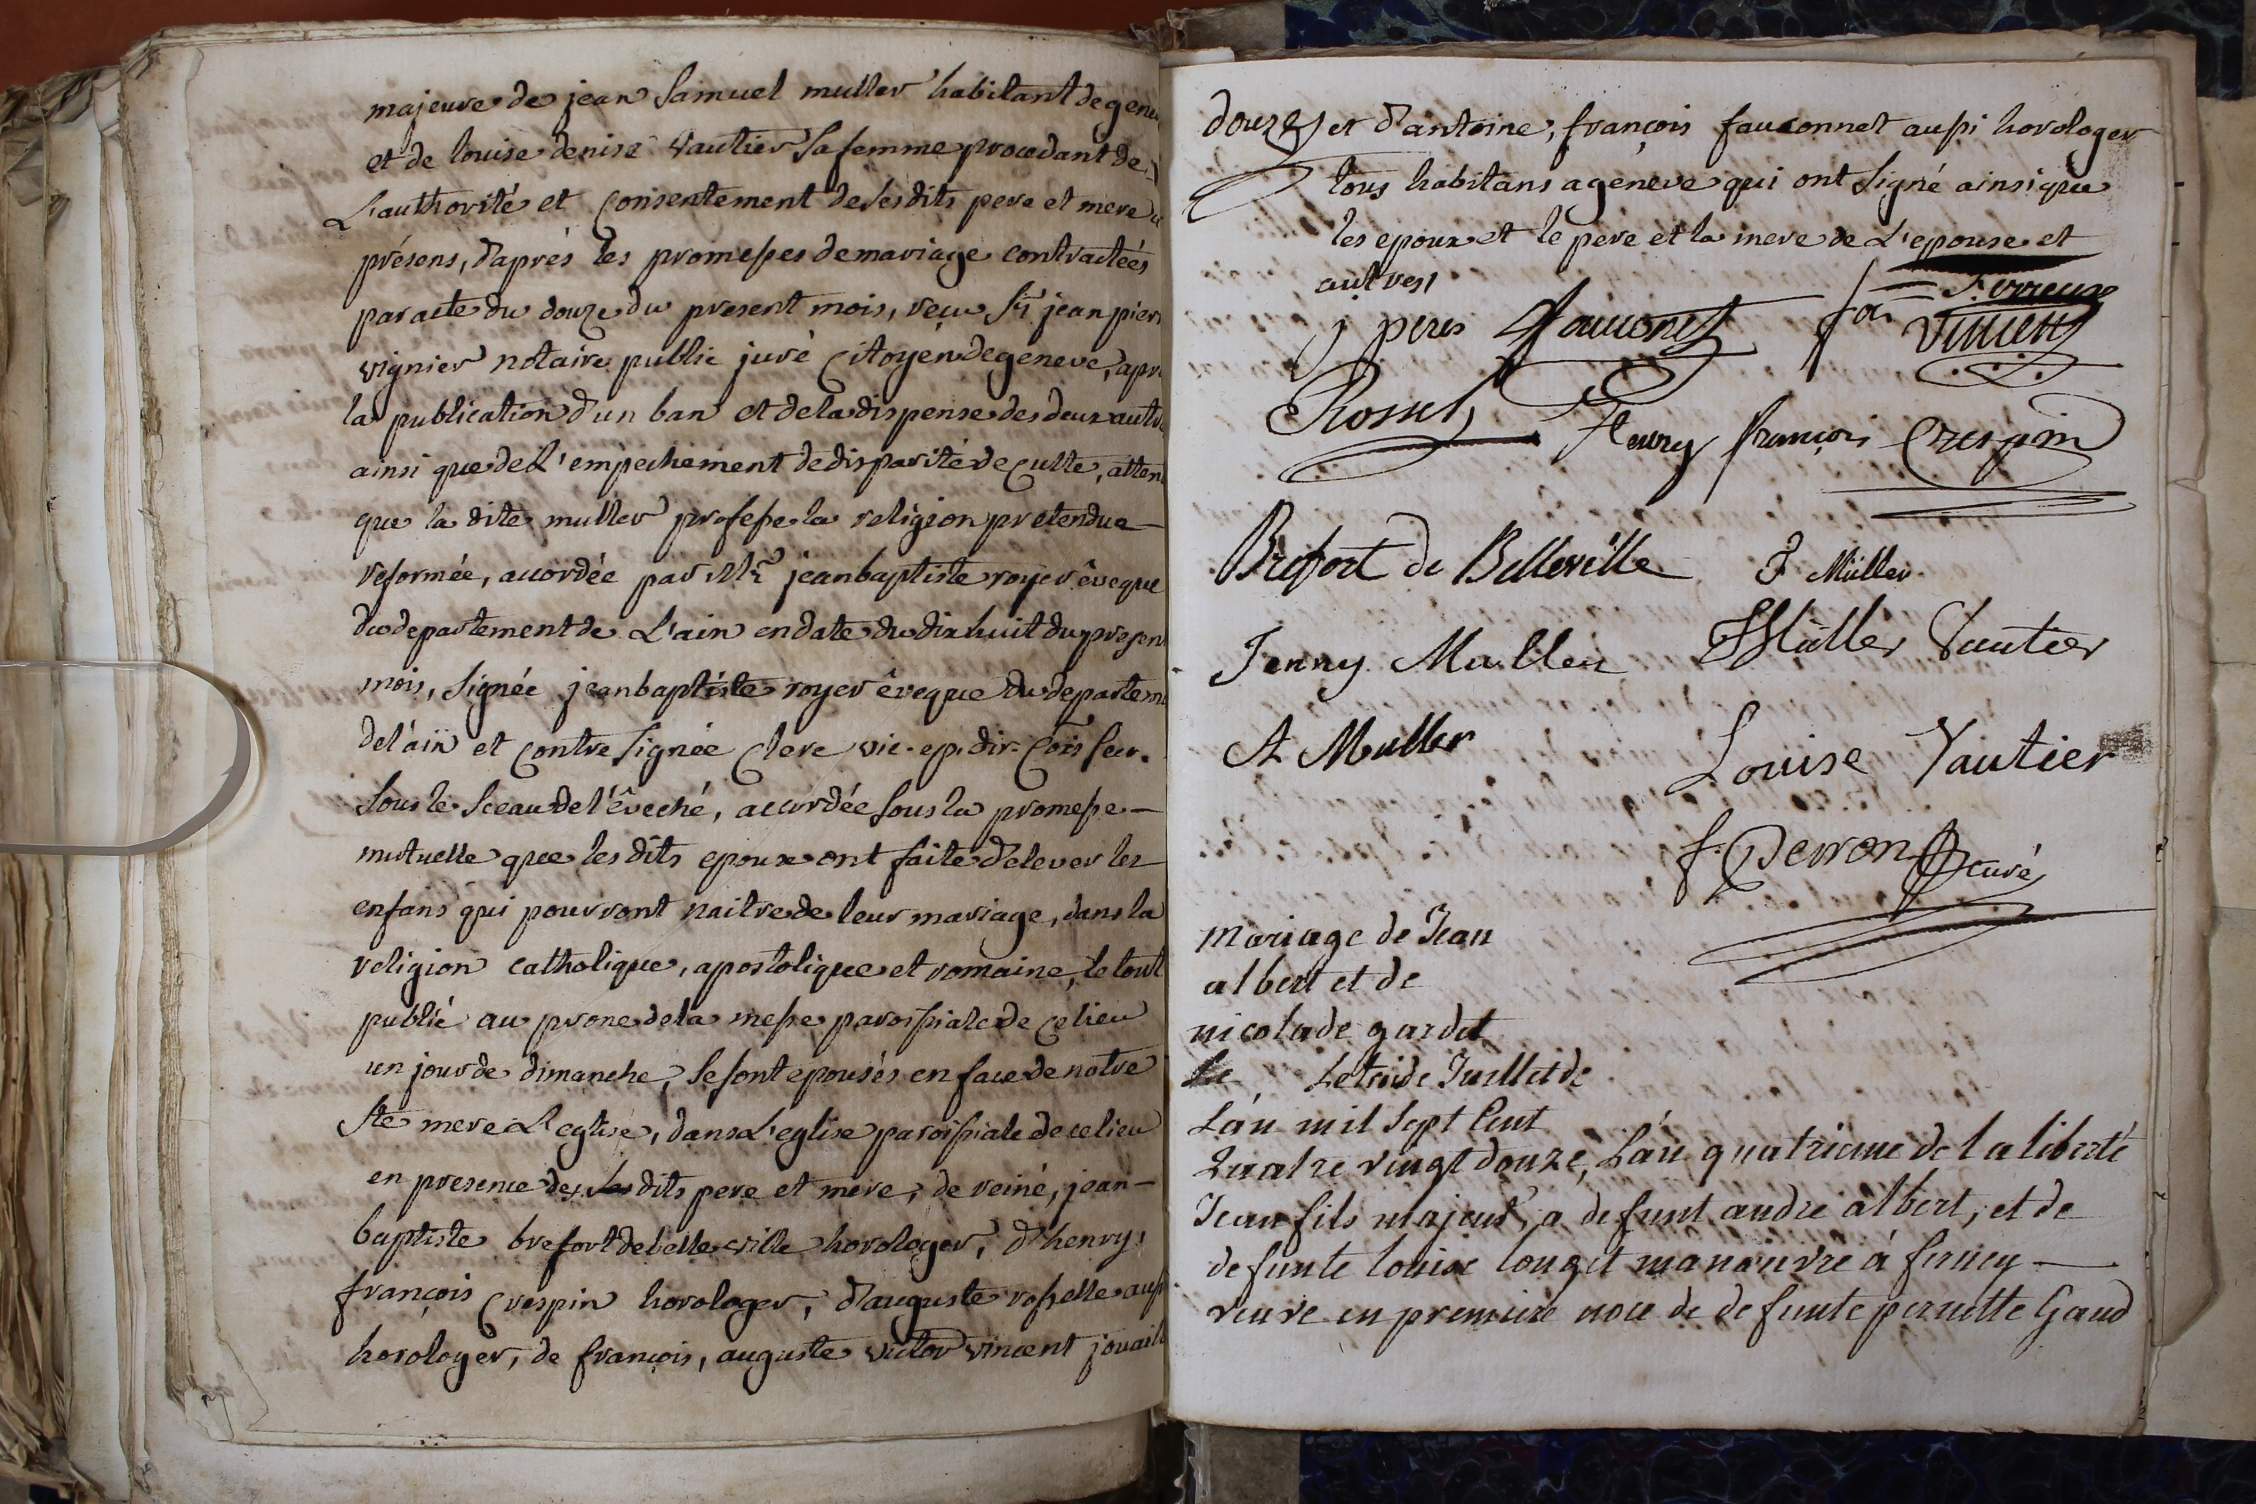 majeure de jean Samuel muller habitant de gene
et de louise denise vautier sa femme procedant de
L'authorité et consentement de sesdits pere et mere
présens, d'aprés les promesses de mariage contractées
par acte du douze du present mois, reçu Sr jean pier
vignier notaire public juré citoyen de geneve, apr
la publication d'un ban et de la dispense des deux autr
ainsi que de L'empechement de disparité de culte, atten
que la dite muller professe la religion pretendue
reformée, accordée par Mr jean baptiste royer êveque
du departement de L'ain en date du dix huit du presen
mois, signée jean baptiste royer êveque du departem
de l'ain et contresignée Clere vic. ep. dir.
sous le sceau de l'êveché, accordée sous la promesse
mutuelle que les dits epoux ont faite d'elever les
enfans qui pourront naitre de leur mariage, dans la
religion catholique, apostolique et romaine, le tout
publié au prone de la messe paroissiale de ce lieu
un jour de dimanche, se sont epousés en face de notre
Ste mere L'eglise, dans L'eglise paroissiale de ce lieu
en presence des dits pere et mere, de reiné, jean
baptiste brefort de belle ville horologer, d'henry,
françois crespin horologer, d'auguste rosselle auss
horologer, de françois, auguste victor vincent jouail
et d'antoine, françois fauconnet aussi horologer
tous habitans a geneve qui ont signé ainsi que
les epoux et le pere et la mere de L'epouse et
autres
j peres fauconet
Vincent
Rosset
henry françois Crespin
Brefort de Belleville J Müller
Jenny Muller Müller Vautier
A Muller
Louise Vautier
f. Perron curé
mariage de Jean
albert et de
nicolade gardet
Le Le trois de Juillet de
L'an mil Sept Cent
quatre vingt douze, L'an quatrieme de la liberté
Jean fils majeur, a defunt andre albert, et de
defunte louise longet manoeuvre á ferney
veuve en premiere noce de defunte pernette Gaud